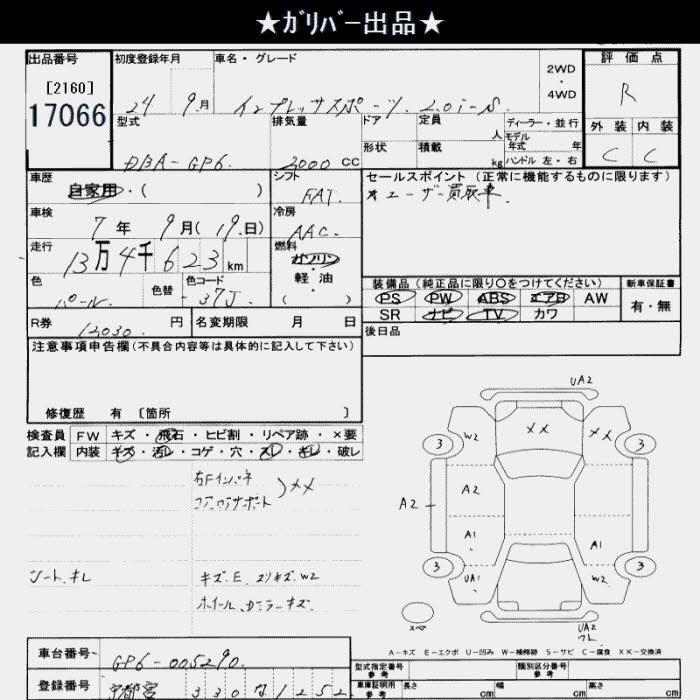 ★ｶﾞﾘﾊﾞｰ出品★
出品番号
[2160]
17066
初度登録年月
24 9月
車名・グレード
インプレッサスポーツ. 2.0i-S.
2WD
・
4WD
評価点
R
外装 内装
C C
型式
DBA-GP6.
排気量
2000 CC
ドア
形状
定員
人
積載
kg
ディーラー・並行
モデル
年式 年
ハンドル 左・右
車歴
自家用・( )
シフト
FAT.
車検
7年 9月(19.日)
冷房
AAC.
走行
13万4千623km
燃料
ガソリン
・
軽油
( )
色
パール.
色替
色コード
37J.
セールスポイント (正常に機能するものに限ります)
★ユーザー買取車.
装備品 (純正品に限り○をつけてください)
PS PW ABS エアB AW
SR ナビ TV カワ
新車保証書
有・無
R券
12030. 円
名変期限 月 日
後日品
注意事項申告欄 (不具合内容等は具体的に記入して下さい)
修復歴 有 [箇所 ]
検査員
記入欄
FW キズ・飛石・ヒビ割・リペア跡・×要
内装 キズ・汚レ・コゲ・穴・スレ・キレ・破レ
右Fインパネ
コアロアサポート
)××
シート.キレ
キズ.E.スリキズ.W2
ホイール.カラーキズ.
UA2
3 W2 ×× ×× 3
A2 A2
A1 A1
3 UA1 W2 3
スペア
UA2
ワレ
A-キズ E-エクボ U-凹み W-補修跡 S-サビ C-腐食 ××-交換済
車台番号
GP6-005290.
登録番号
宇都宮 330 な 1252
型式指定番号
参考
類別区分番号
参考
車庫証明用
参考
長さ cm 幅 cm 高さ cm